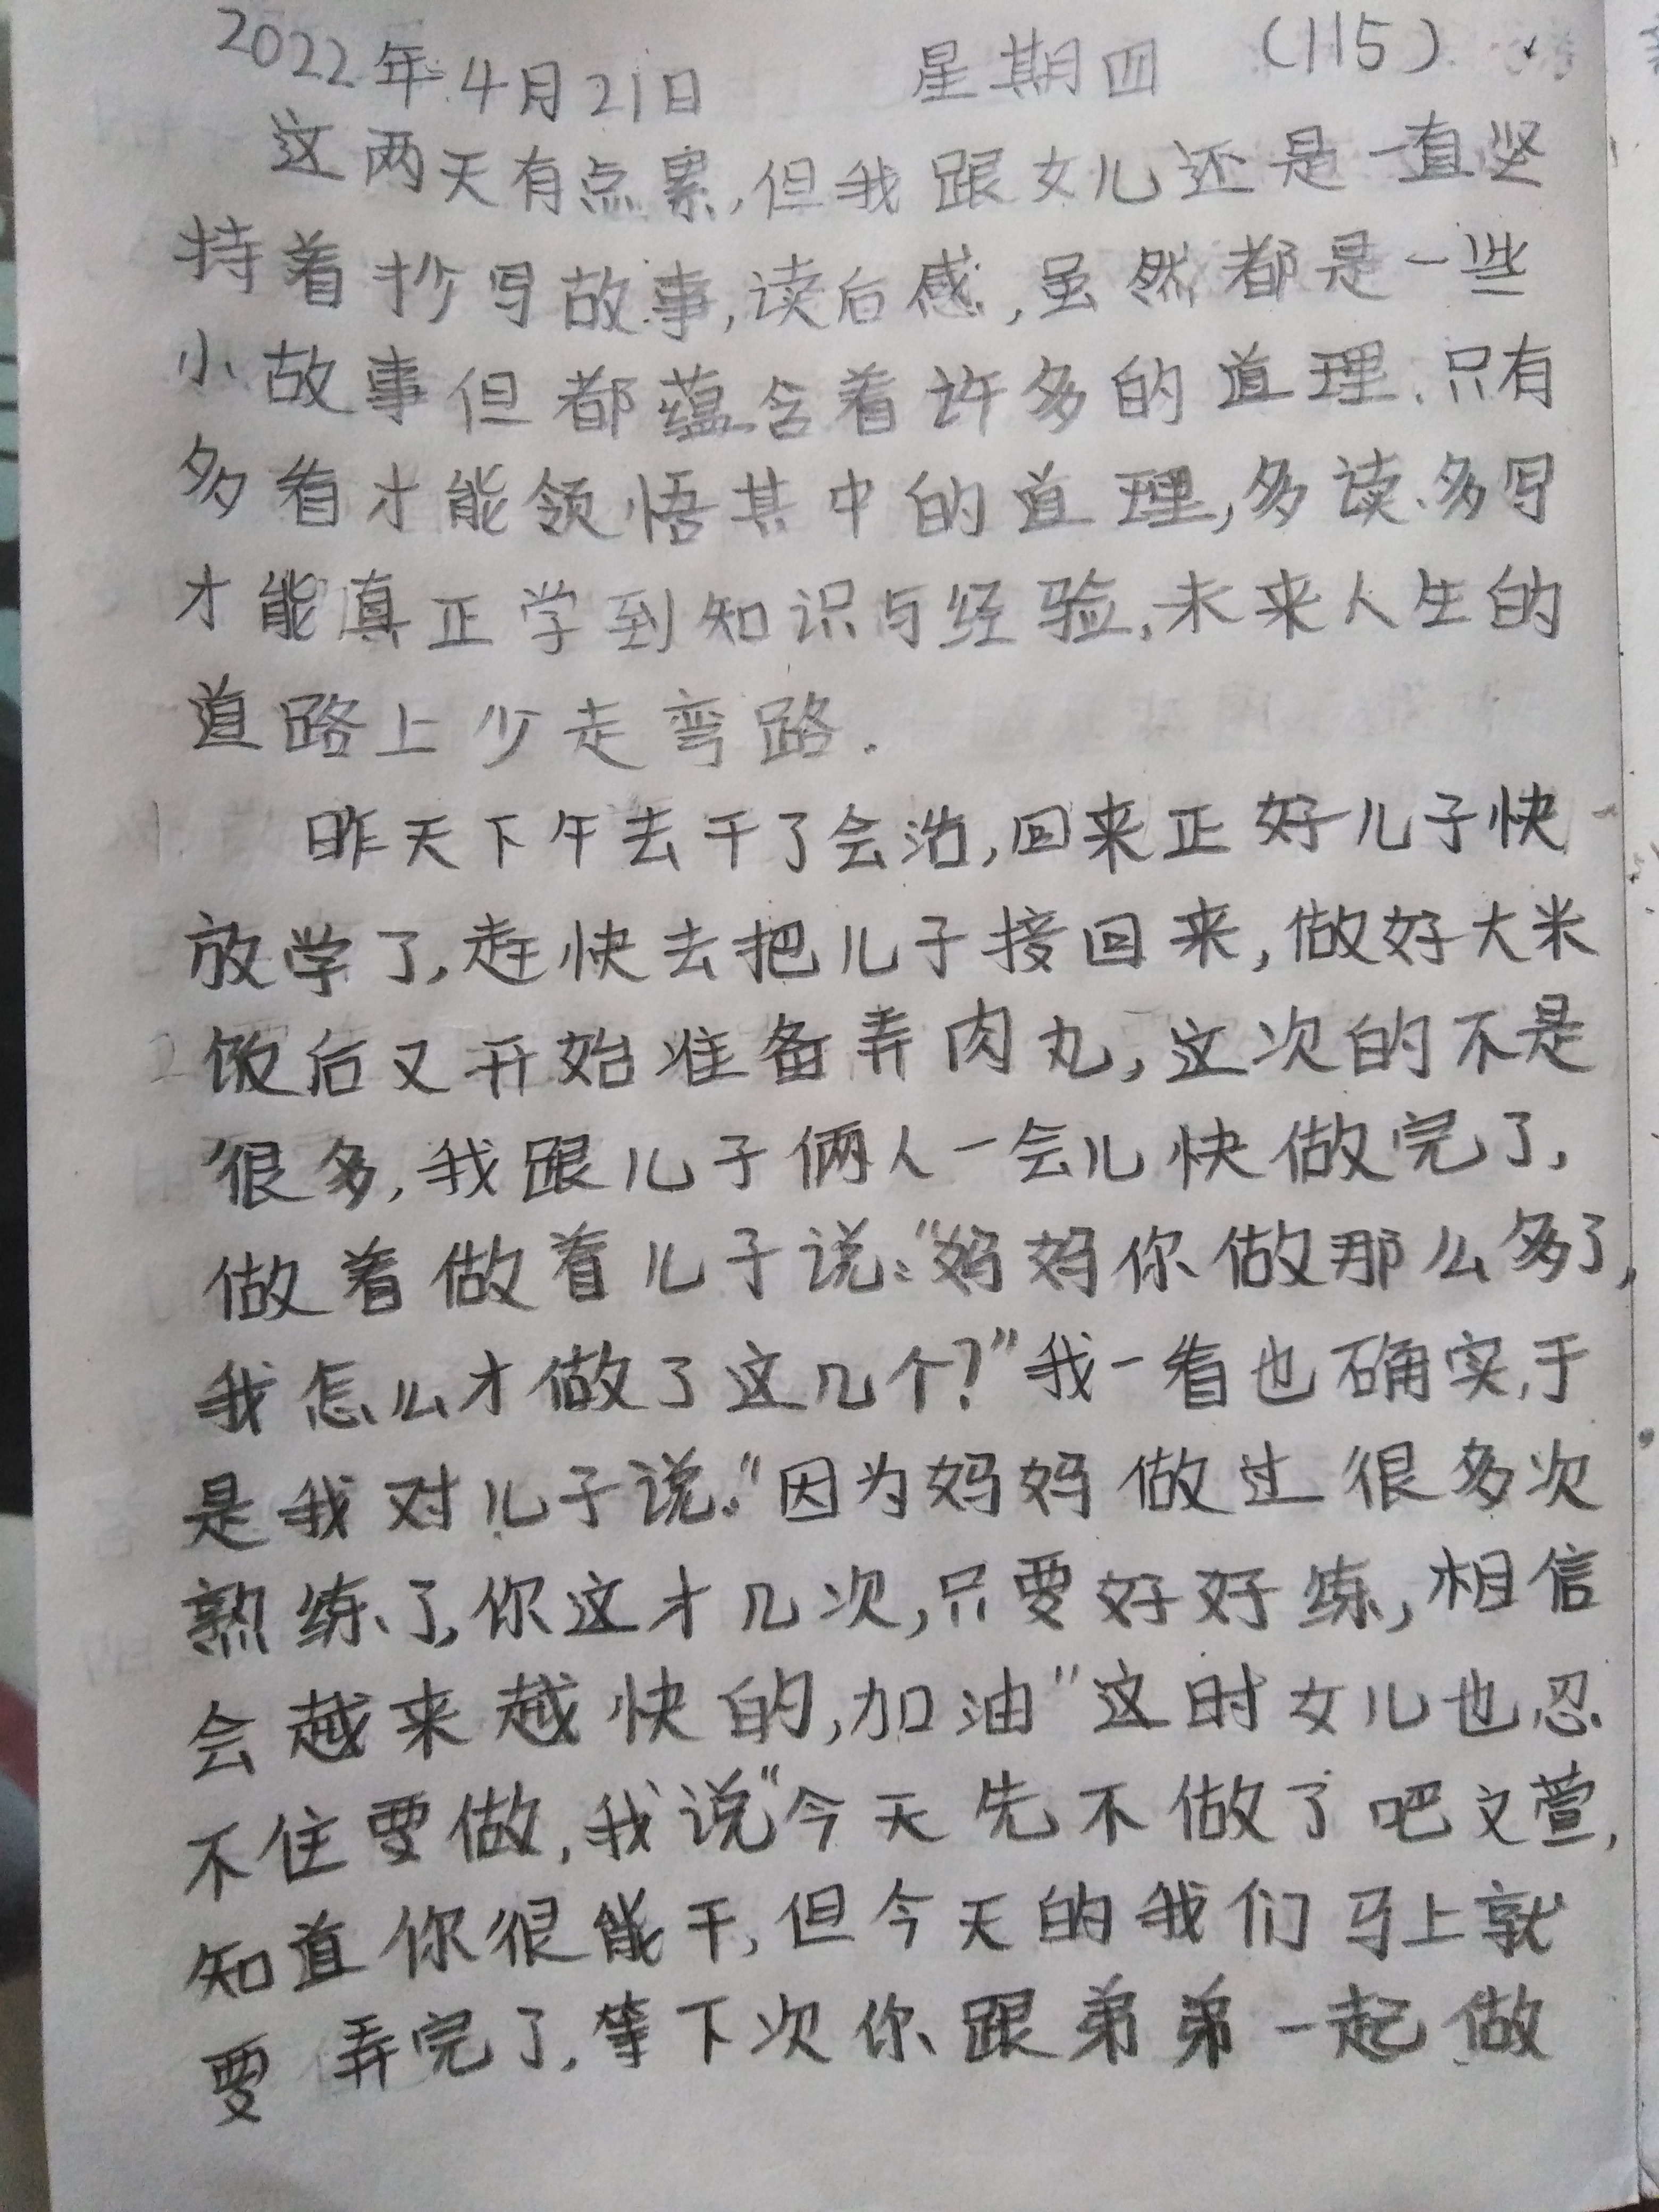 2022年4月21日 星期四 (115)
这两天有点累,但我跟女儿还是一直坚
持着抄写故事,读后感,虽然都是一些
小故事但都蕴含着许多的道理.只有
多看才能领悟其中的道理,多读.多写
才能真正学到知识与经验,未来人生的
道路上少走弯路.
昨天下午去干了会活,回来正好儿子快
放学了,赶快去把儿子接回来,做好大米
饭后又开始准备弄肉丸,这次的不是
很多,我跟儿子俩人一会儿快做完了,
做着做着儿子说:“妈妈你做那么多了,
我怎么才做了这几个?”我一看也确实,于
是我对儿子说:“因为妈妈做过很多次
熟练了,你这才几次,只要好好练,相信
会越来越快的,加油”这时女儿也忍
不住要做,我说“今天先不做了吧文萱,
知道你很能干,但今天的我们马上就
要弄完了,等下次你跟弟弟一起做